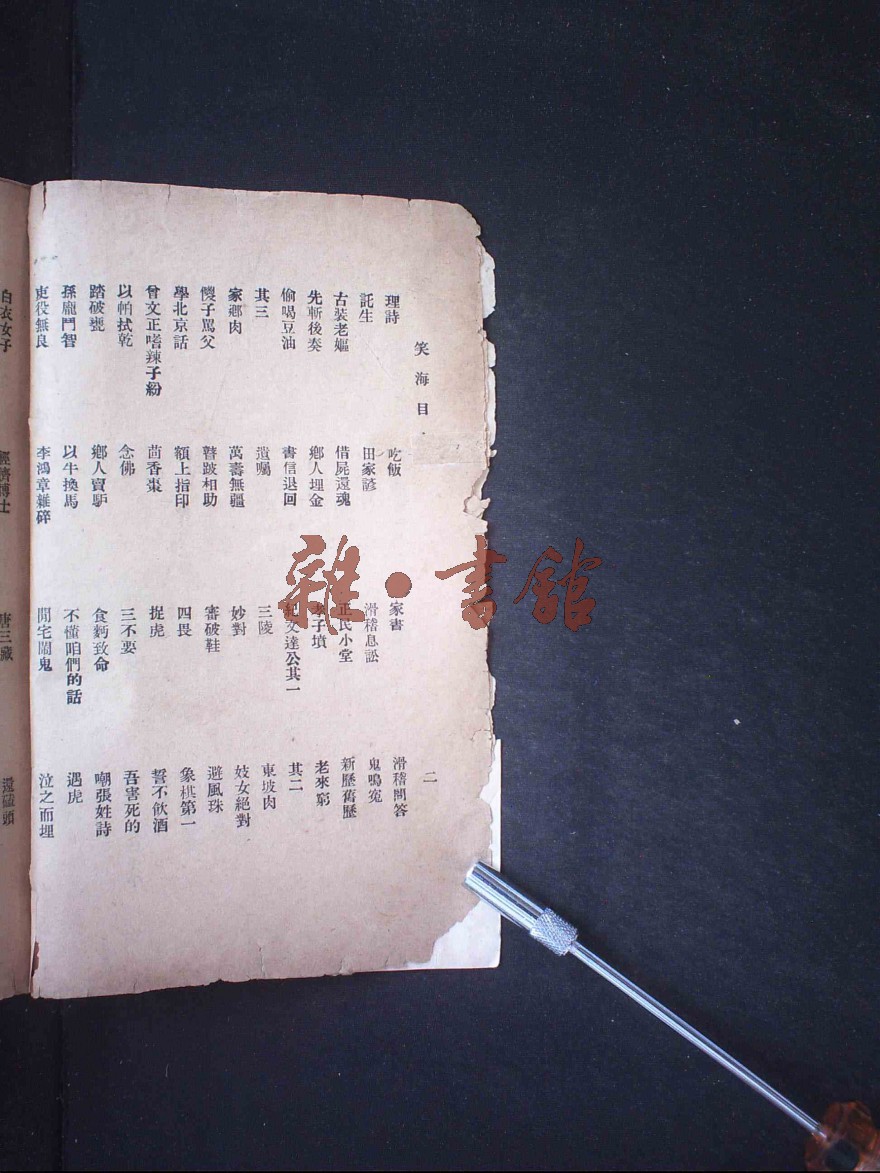 笑海目
二
理詩 吃飯 家書 滑稽問答
託生 田家諺 滑稽息訟 鬼鳴寃
古裝老嫗 借屍還魂 正民小堂 新歷舊歷
先斬後奏 鄉人埋金 孝子墳 老來窮
偷喝豆油 書信退回 紀文達公其一 其二
其三 遺囑 三陵 東坡肉
家鄉肉 萬壽無疆 妙對 妓女絕對
戇子駡父 瞽跛相助 審破鞋 避風珠
學北京話 額上指印 四畏 象棋第一
曾文正嗜辣子粉 茴香棗 捉虎 誓不飲酒
以帕拭乾 念佛 三不要 吾害死的
踏破甕 鄉人賣驢 食麪致命 嘲張姓詩
孫龐鬥智 以牛換馬 不懂咱們的話 遇虎
吏役無良 李鴻章雜碎 閙鬼 泣之而埋
白衣女子 經濟博士 唐三藏
雜·書館